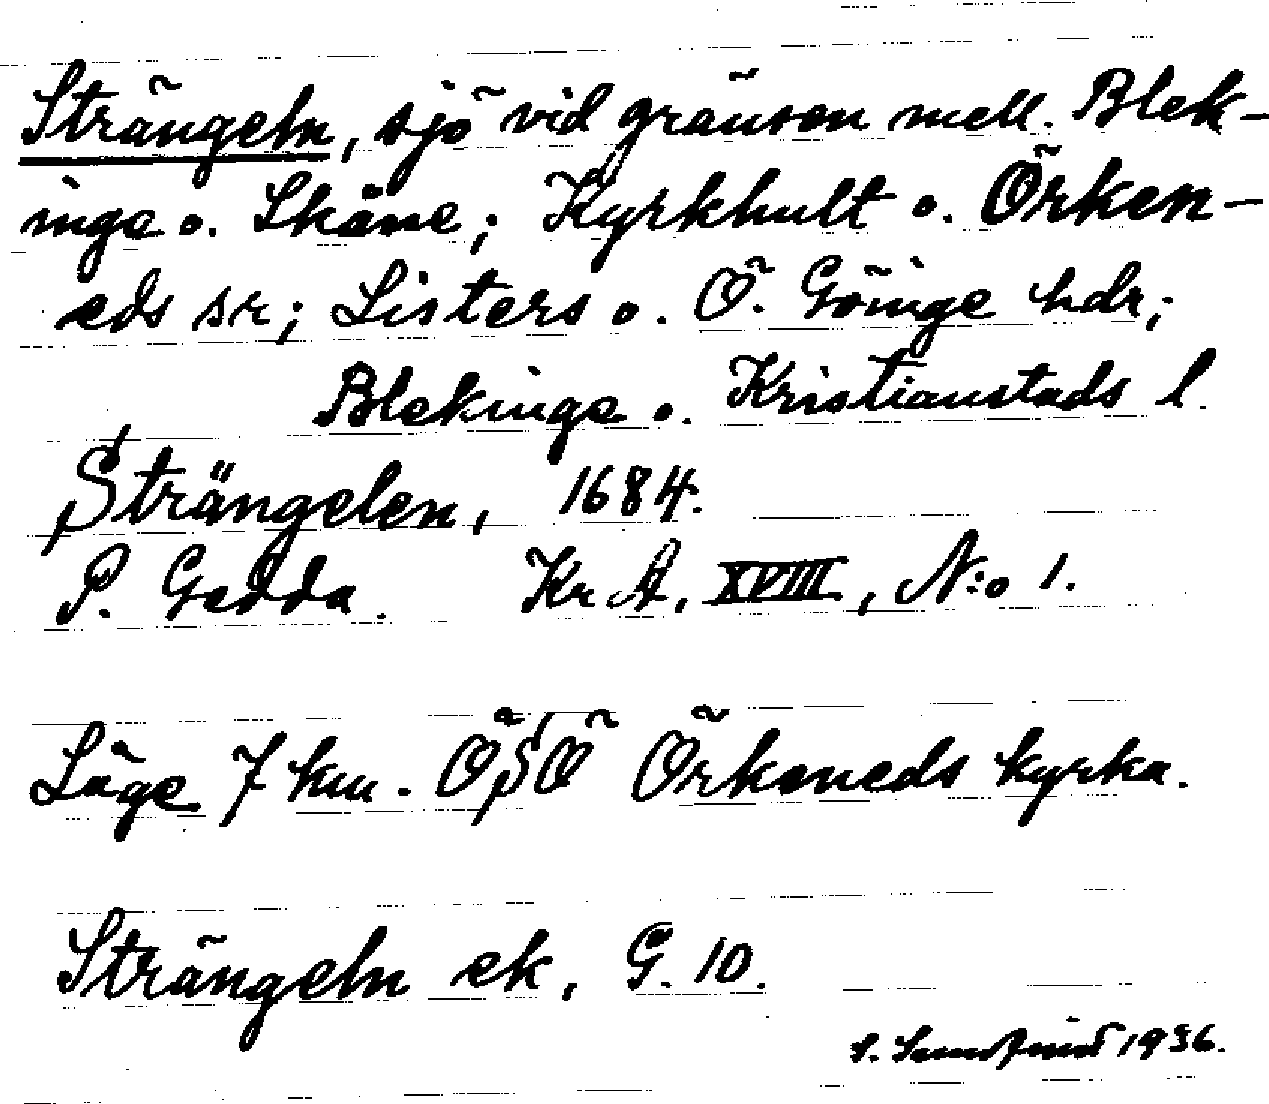 Strängeln, sjö vid gränsen mell. Blek-
inge o. Skåne; Kyrkhult o. Örken-
eds sr; Listers o. Ö. Göinge hdr;
Blekinge o. Kristianstads l.
Strängelen, 1684.
P. Gedda. Kr A, XVIII, N:o 1.
Läge 7 km. ÖSÖ Örkeneds kyrka.
Strängeln ek, G. 10.
1936.